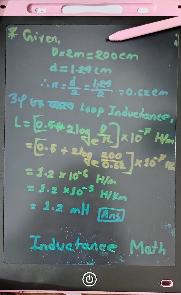 # Given,
D = 2m = 200 cm
d = 1.24 cm
∴ r = d/2 = 1.24/2 = 0.62 cm
Loop Inductance,
L = [0.5 + 2 log_e D/r] × 10⁻⁷ H/m
= [0.5 + 2 log_e 200/0.62] × 10⁻⁷ H/m
= 1.2 × 10⁻⁶ H/m
= 1.2 × 10⁻³ H/km
= 1.2 mH Ans
Inductance Math